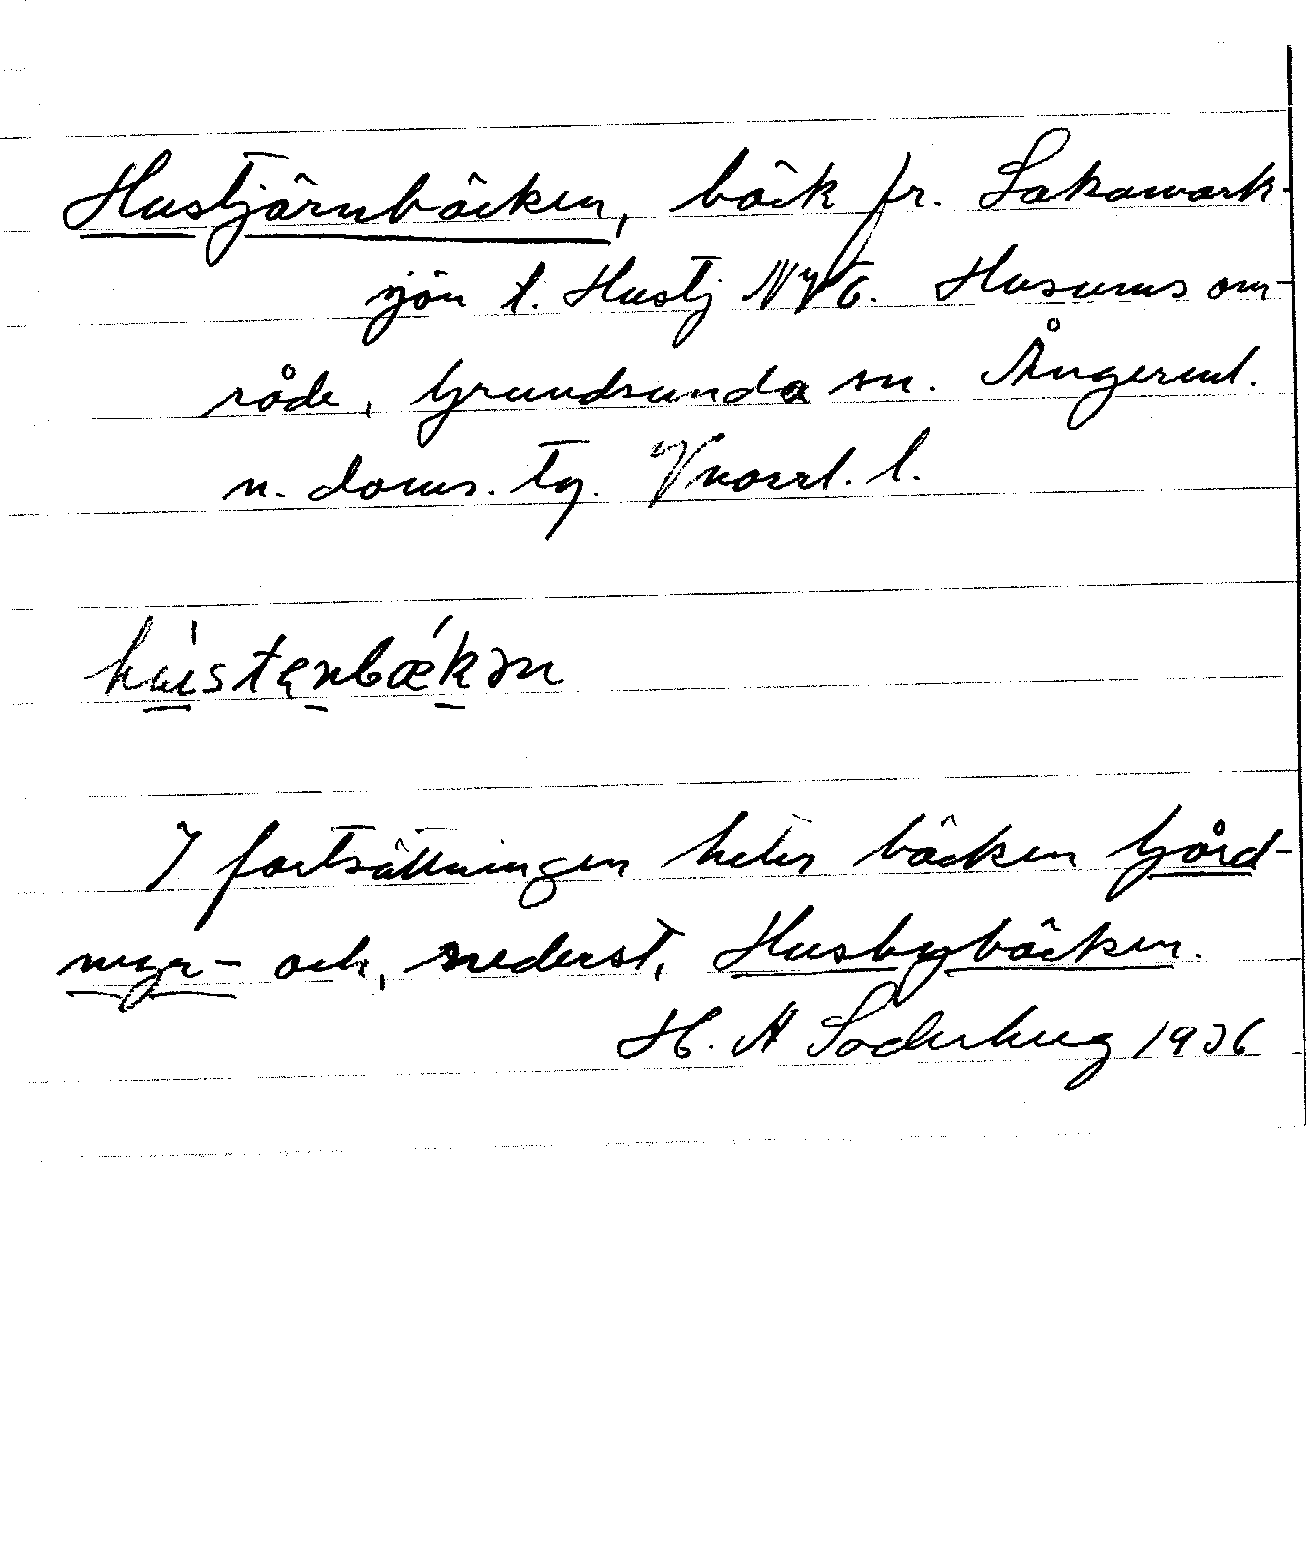 Hustjärnbäcken, bäck fr. Sakawark-
sjön t. Hustj NVO. Husums om-
råde, Grundsunda sn. Ångerml.
n. doms. tg. Vnorrl. l.
I fortsättningen heter bäcken Gård-
myr- och, nederst, Husbybäcken.
H. A Söderberg 1936